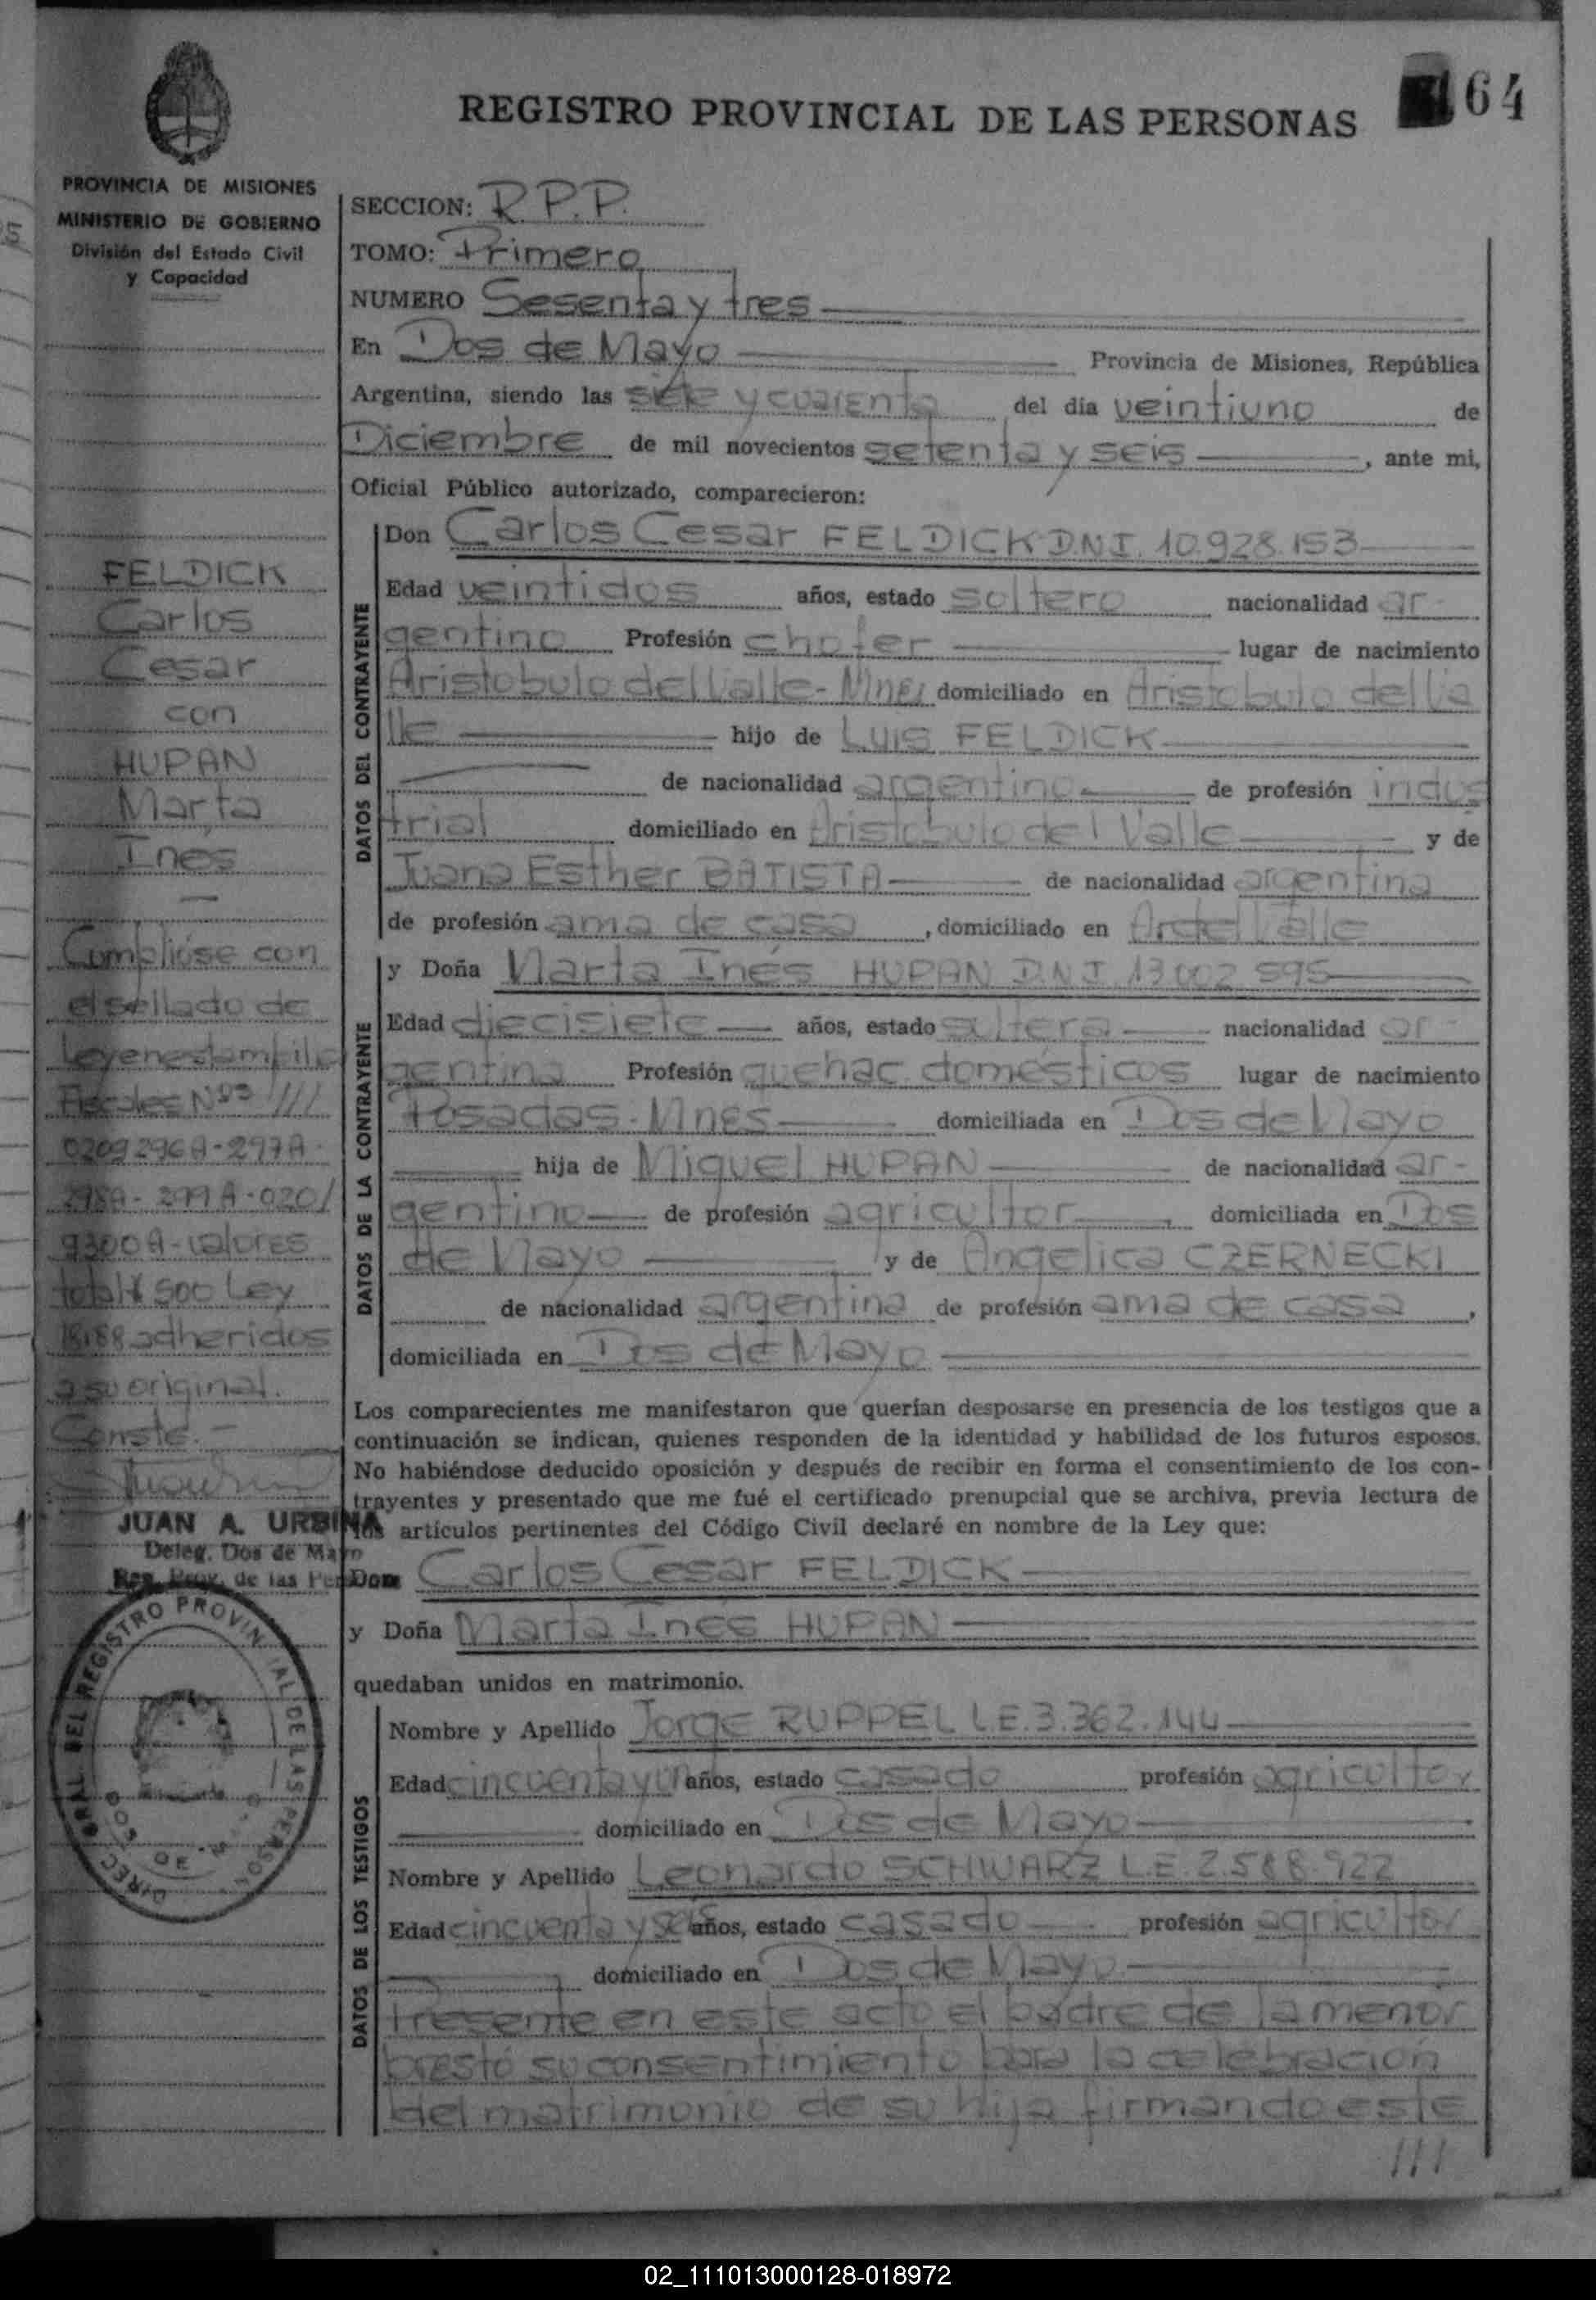 64
REGISTRO PROVINCIAL DE LAS PERSONAS
PROVINCIA DE MISIONES
MINISTERIO DE GOBIERNO
División del Estado Civil
y Capacidad
SECCION: R.P.P.
TOMO: Primero
NUMERO Sesenta y tres
En Dos de Mayo Provincia de Misiones, República
Argentina, siendo las siete y cuarenta del día veintiuno de
Diciembre de mil novecientos setenta y seis, ante mi,
Oficial Público autorizado, comparecieron:
FELDICK
Carlos
Cesar
con
HUPAN
Marta
Inés
Cumplióse con
el sellado de
Ley en estampilla
Fiscales Nos ///
0209296A-297A-
298A-299A-020/
9300A-valores
total $ 500 Ley
18188 adheridos
a su original.
Conste.-
JUAN A. URBINA
Deleg. Dos de Mayo
Reg. Prov. de las Per
DATOS DEL CONTRAYENTE
Don Carlos Cesar FELDICK D.N.I. 10.928.153
Edad veintidos años, estado soltero nacionalidad ar-
gentino Profesión chofer lugar de nacimiento
Aristobulo del Valle-Mnes domiciliado en Aristobulo del Va
lle hijo de Luis FELDICK
de nacionalidad argentino de profesión indus
trial domiciliado en Aristobulo del Valle y de
Juana Esther BATISTA de nacionalidad argentina
de profesión ama de casa, domiciliado en Ar del Valle
DATOS DE LA CONTRAYENTE
y Doña Marta Inés HUPAN D.N.I. 13.002.595
Edad diecisiete años, estado soltera nacionalidad ar-
gentina Profesión quehac. domésticos lugar de nacimiento
Posadas-Mnes domiciliada en Dos de Mayo
hija de Miguel HUPAN de nacionalidad ar-
gentino de profesión agricultor, domiciliada en Dos
de Mayo y de Angelica CZERNECKI
de nacionalidad argentina de profesión ama de casa,
domiciliada en Dos de Mayo
Los comparecientes me manifestaron que querían desposarse en presencia de los testigos que a
continuación se indican, quienes responden de la identidad y habilidad de los futuros esposos.
No habiéndose deducido oposición y después de recibir en forma el consentimiento de los con-
trayentes y presentado que me fué el certificado prenupcial que se archiva, previa lectura de
los artículos pertinentes del Código Civil declaré en nombre de la Ley que:
Don Carlos Cesar FELDICK
y Doña Marta Inés HUPAN
quedaban unidos en matrimonio.
DATOS DE LOS TESTIGOS
Nombre y Apellido Jorge RUPPEL L.E. 3.362.144
Edad cincuenta y un años, estado casado profesión agricultor
domiciliado en Dos de Mayo
Nombre y Apellido Leonardo SCHWARZ L.E. 2.588.922
Edad cincuenta y seis años, estado casado profesión agricultor
domiciliado en Dos de Mayo
Presente en este acto el padre de la menor
prestó su consentimiento para la celebración
del matrimonio de su hija firmando este
///
02_111013000128-018972